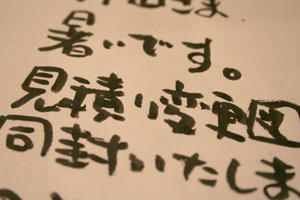 さま
暑いです。
見積り変更
同封いたしま